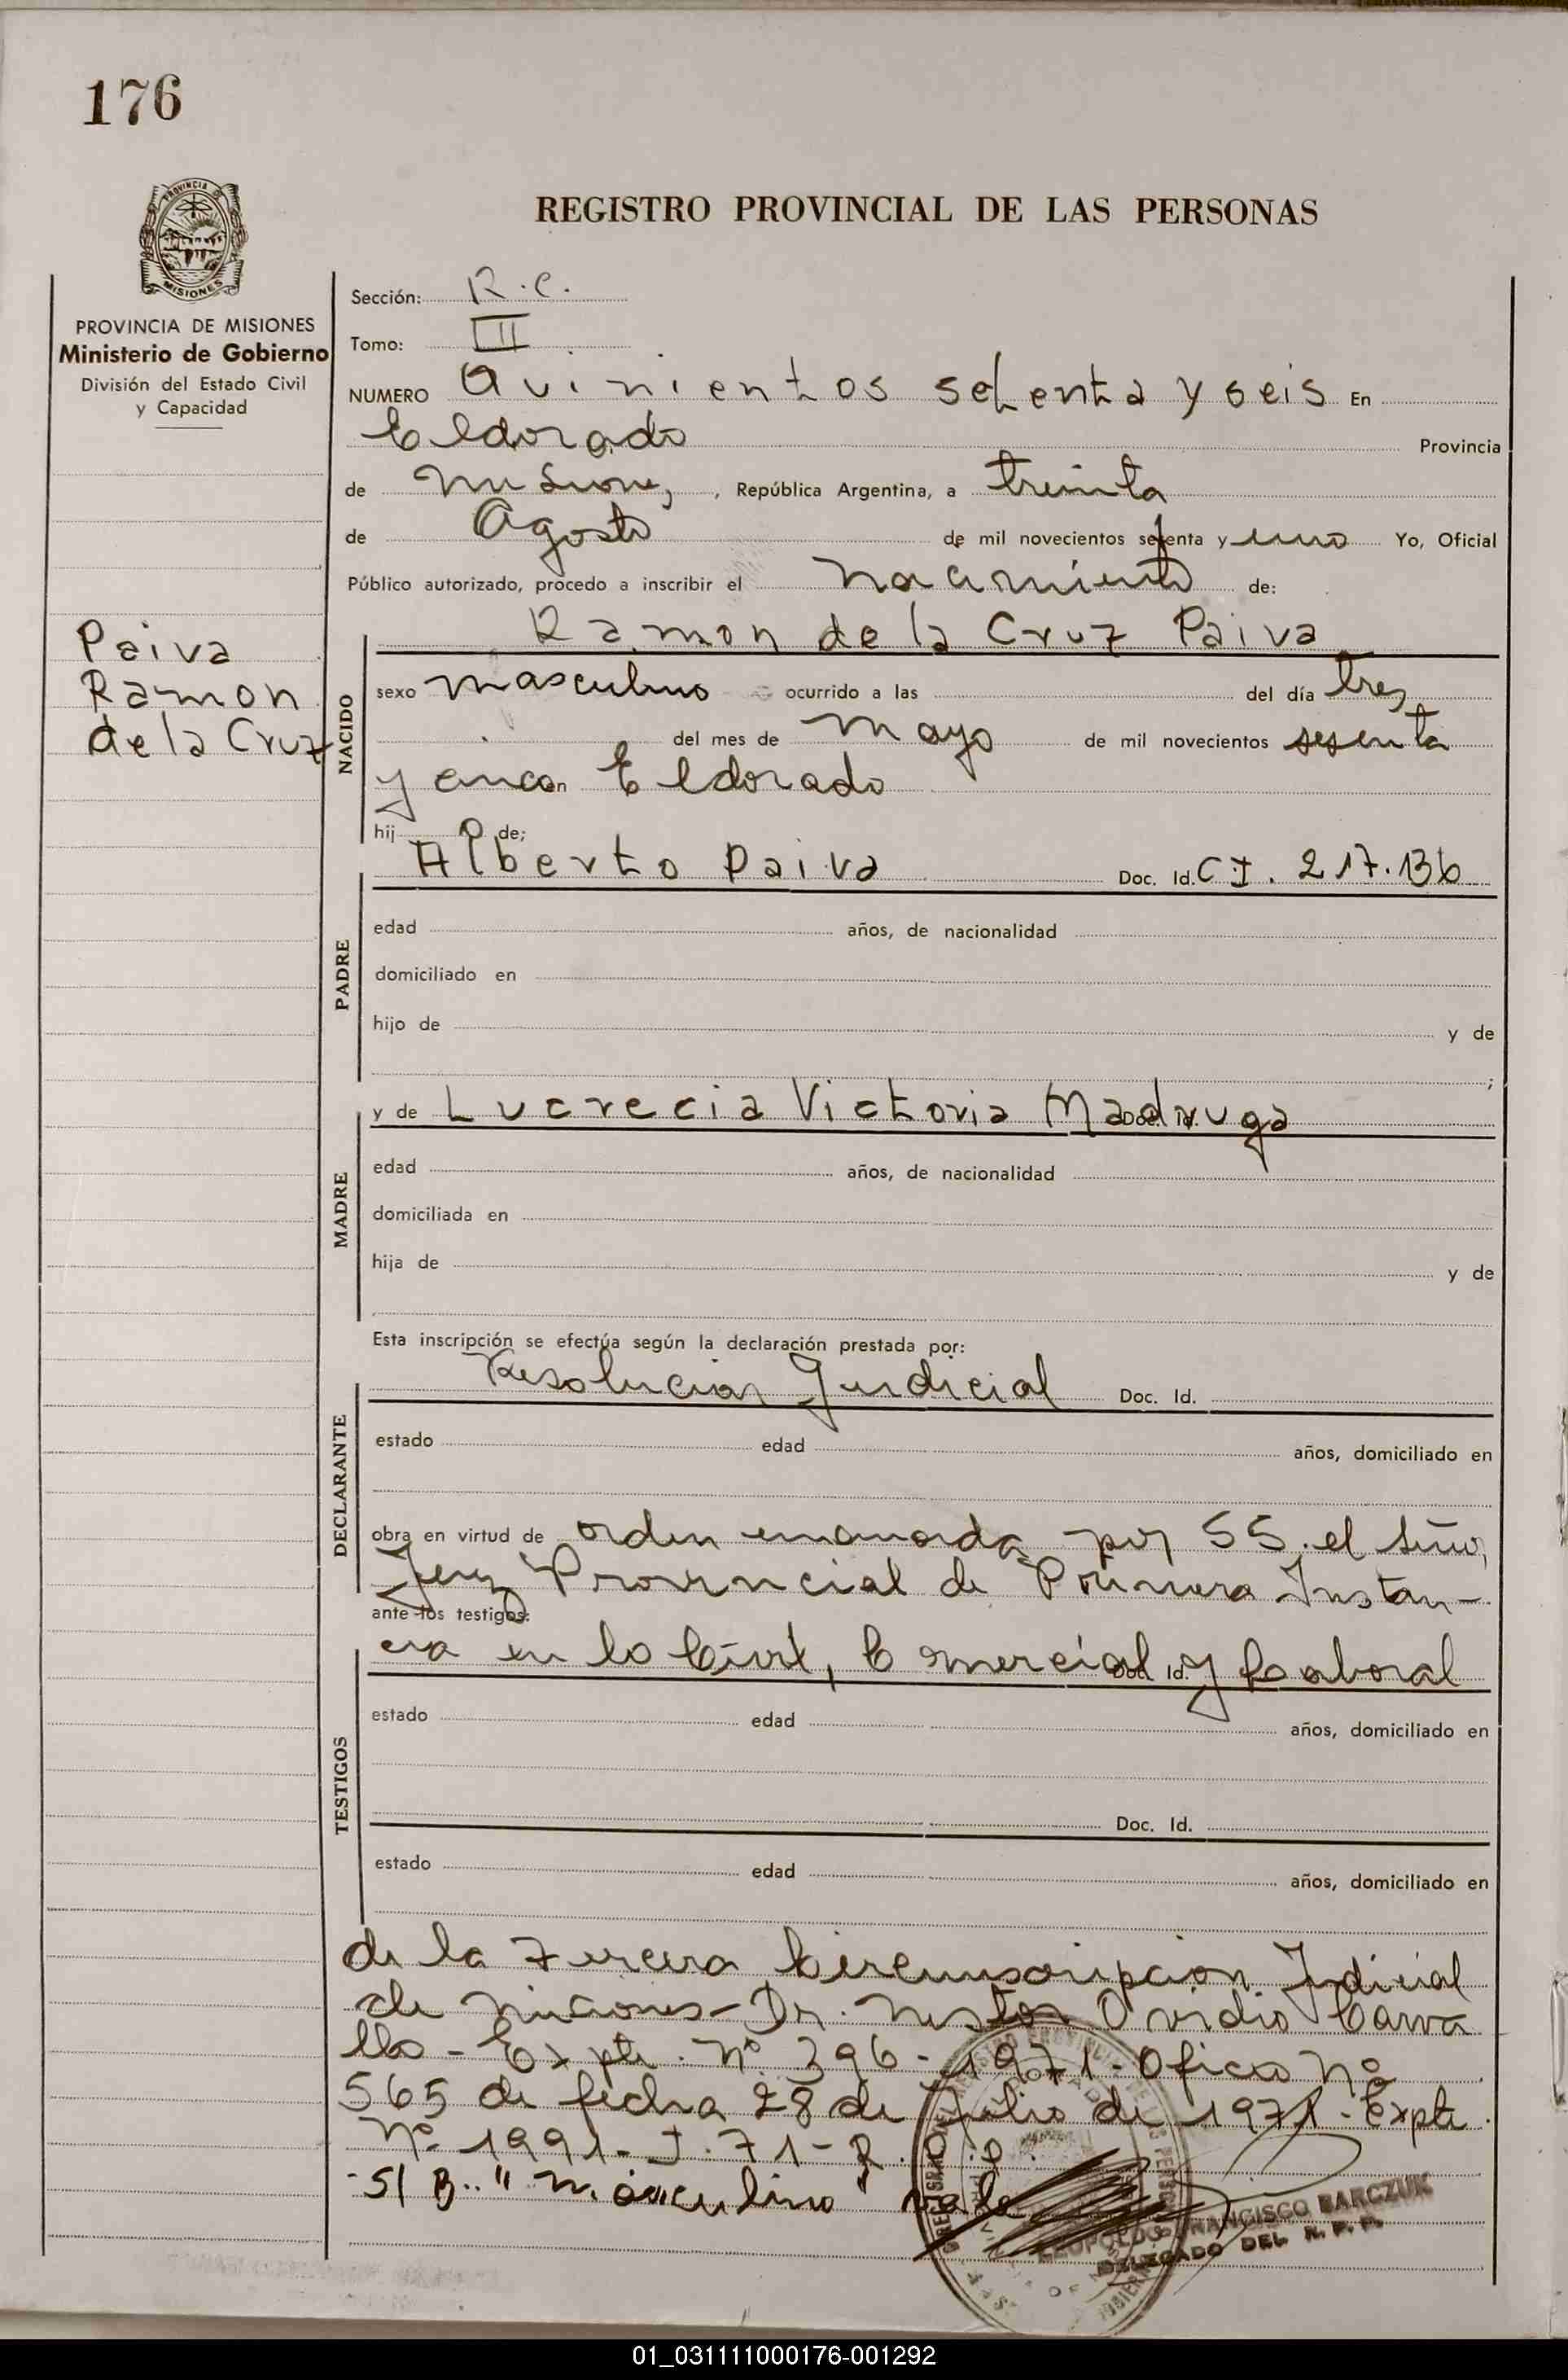 176
PROVINCIA DE MISIONES
PROVINCIA DE MISIONES
Ministerio de Gobierno
División del Estado Civil
y Capacidad
Paiva
Ramon
de la Cruz
REGISTRO PROVINCIAL DE LAS PERSONAS
Sección: R.C.
Tomo: III
NUMERO Quinientos setenta y seis En
Eldorado Provincia
de Misiones, República Argentina, a treinta
de Agosto de mil novecientos setenta y uno Yo, Oficial
Público autorizado, procedo a inscribir el nacimiento de:
NACIDO
Ramon de la Cruz Paiva
sexo masculino ocurrido a las del día tres
del mes de mayo de mil novecientos sesenta
y cinco en Eldorado
hij o de;
PADRE
Alberto Paiva Doc. Id. C I. 217.136
edad años, de nacionalidad
domiciliado en
hijo de y de
;
MADRE
y de Lucrecia Victoria Madruga Doc. Id.
edad años, de nacionalidad
domiciliada en
hija de y de
Esta inscripción se efectúa según la declaración prestada por:
DECLARANTE
Resolucion Judicial Doc. Id.
estado edad años, domiciliado en
obra en virtud de orden emanada por SS. el señor
Juez Provincial de Primera Instan-
ante los testigos:
TESTIGOS
cia en lo Civil, Comercial y Laboral Doc. Id.
estado edad años, domiciliado en
Doc. Id.
estado edad años, domiciliado en
de la Tercera Circunscripcion Judicial
de Misiones - Dr. Nestor Ovidio Carva
llo - Expte. Nº 396 - 1971 - Oficio Nº
565 de fecha 28 de Julio de 1971 - Expte.
Nº 1991 - J. 71 - R.P.P.
S/ B.. "masculino" vale
LEOPOLDO FRANCISCO BARCZUK
DELEGADO DEL R. P. P.
01_031111000176-001292